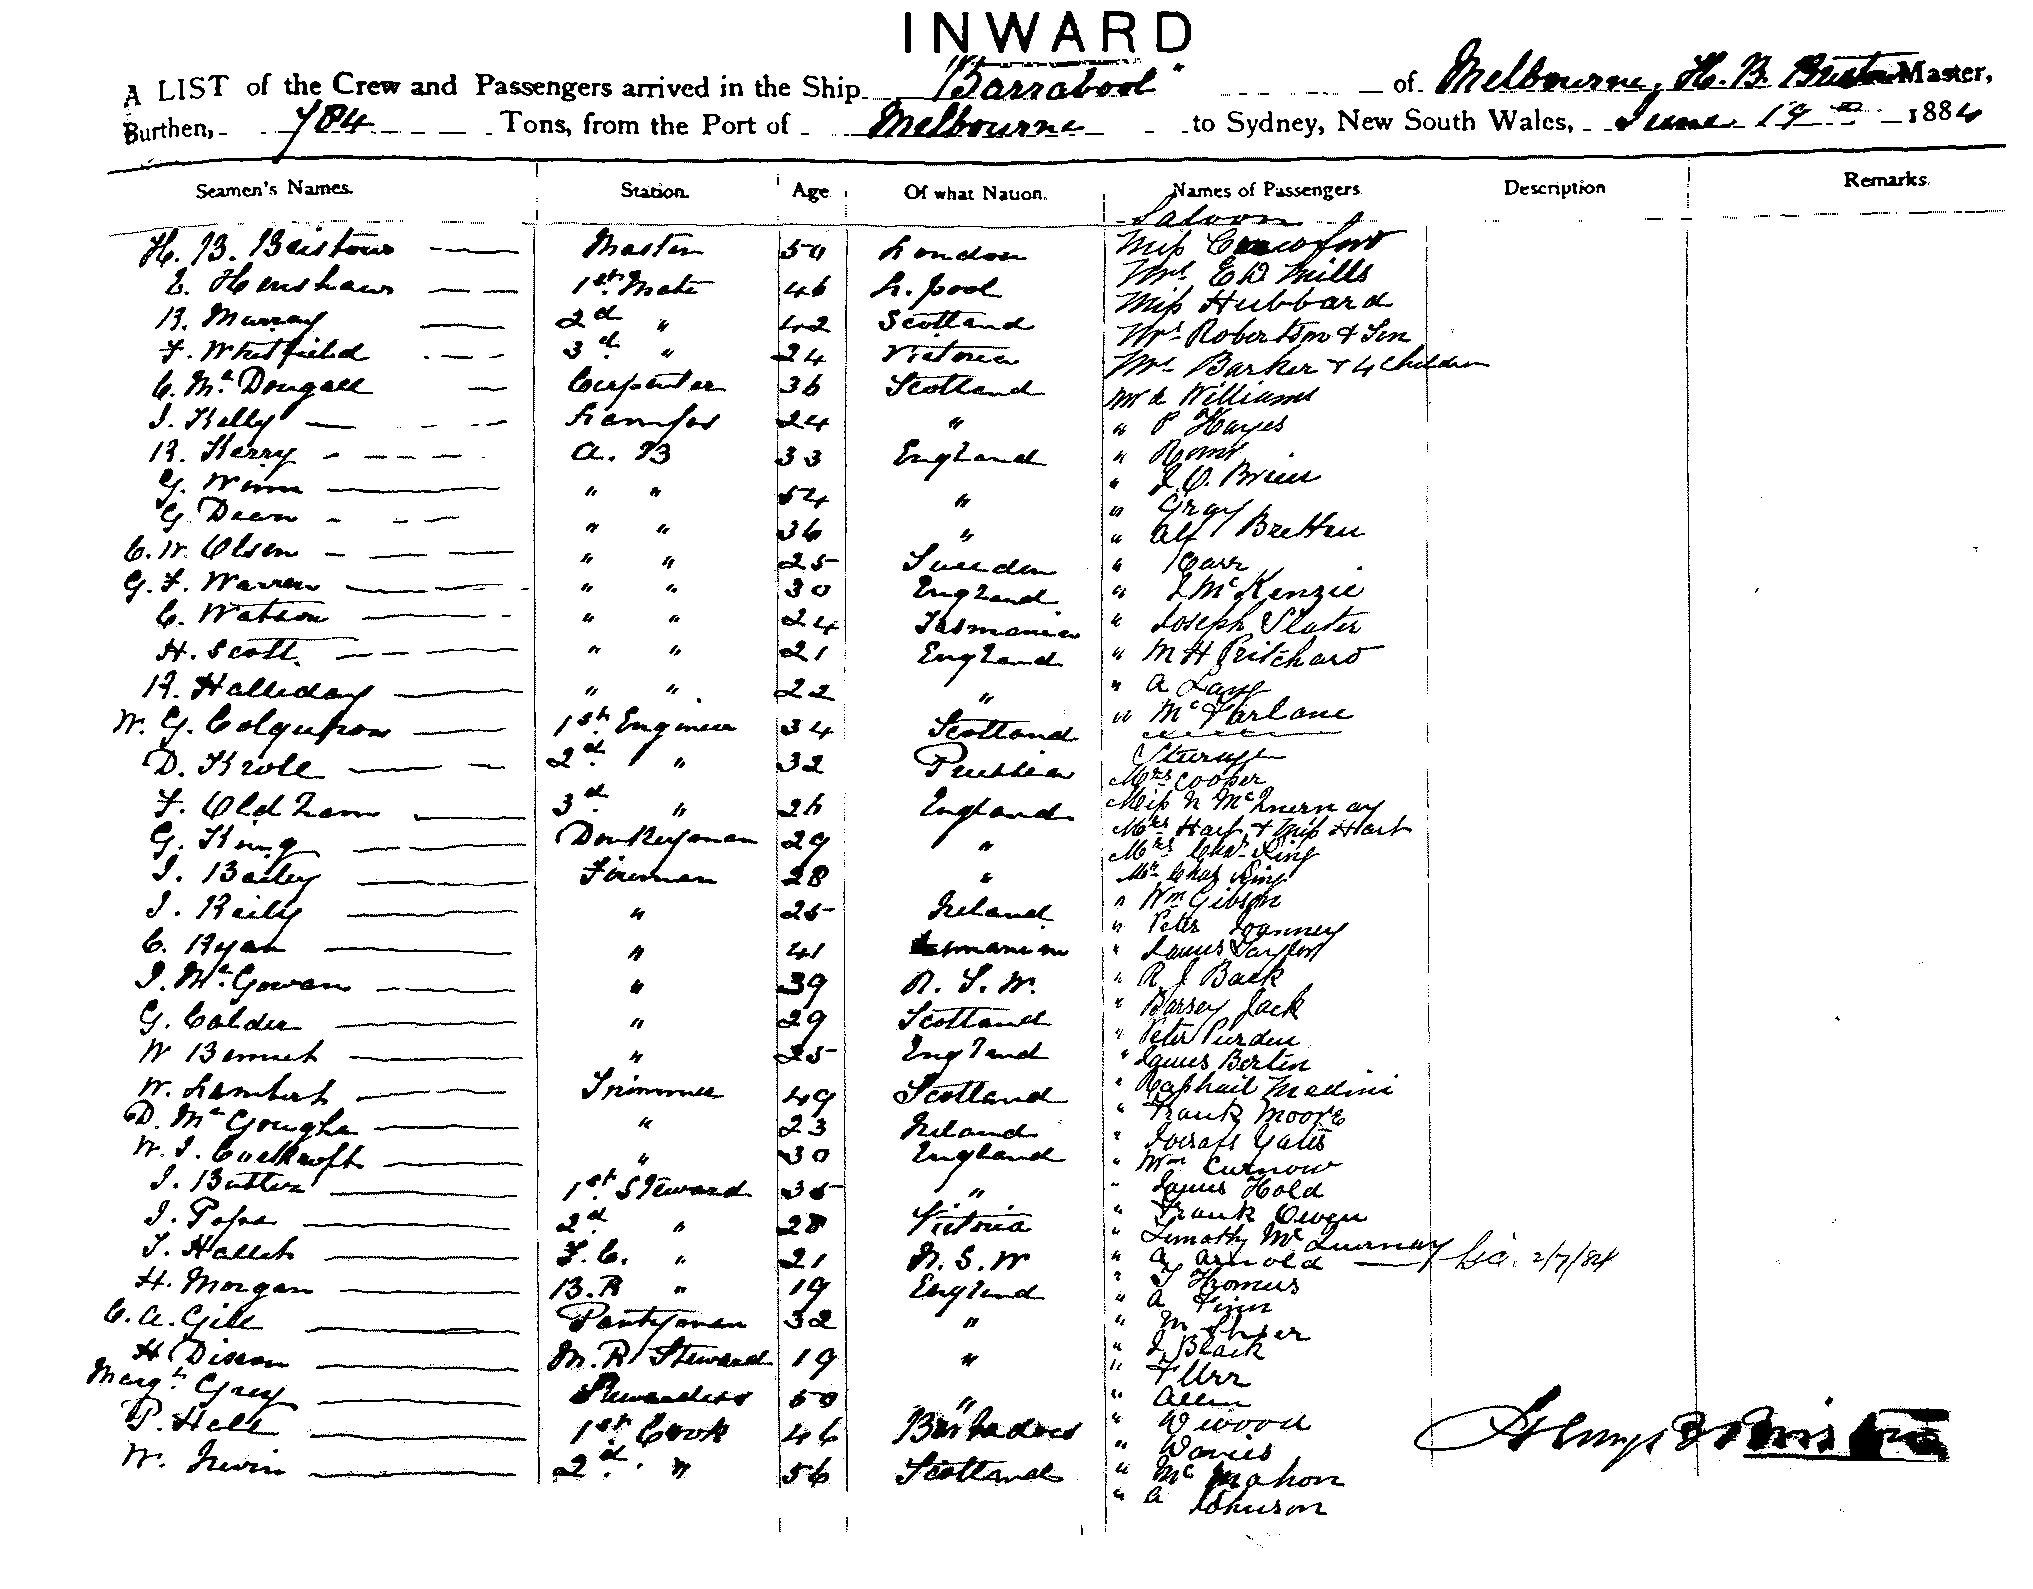 INWARD
A LIST of the Crew and Passengers arrived in the Ship "Barrabool" of Melbourne, H. B. Bristow Master,
Burthen, 784 Tons, from the Port of Melbourne to Sydney, New South Wales, June 19th 1884
Seamen's Names. Station. Age Of what Nation. Names of Passengers Description Remarks.
Saloon
H. B. Bristow Master 50 London Miss Crawford
E. Henshaw 1st Mate 46 L. pool Mrs E D Mills
R. Murray 2d " 42 Scotland Miss Hubbard
F. Whitfield 3d " 24 Victoria Mrs Robertson & Son
C. McDougall Carpenter 36 Scotland Mrs Barker & 4 Children
J. Kelly Lamps 24 " Mr A Williams
R. Kerry A. B 33 England " P Hayes
G. Winn " " 54 " "
G. Dean " " 36 " " J. O. Brien
C. W. Olsen " " 25 Sweden " Gray
G. F. Warren " " 30 England " Alf Bretten
C. Watson " " 24 Tasmania " Carr
H. Scott " " 21 England " J McKenzie
R. Halliday " " 22 " " Joseph Slater
W. G. Colquhoun 1st Engineer 34 Scotland " M H Pritchard
D. Kroll 2d " 32 Prussia " A Lang
F. Oldham 3d " 26 England " McFarlane
G. King Donkeyman 29 " Steerage
J. Bailey Fireman 28 " Mrs Cooper
J. Reily " 25 Ireland Miss N McInernay
C. Ryan " 41 Tasmania Mrs Hart & Miss Hart
J. McGowan " 39 N. S. W. Mrs Chas King
G. Calder " 29 Scotland Mr Chas King
W Bennet " 25 England " Wm Gibson
W. Lambert Trimmer 49 Scotland " Peter
D. McGough " 23 Ireland " James Taylor
W. J. Cockroft " 30 England " R J Back
J. Butler 1st Steward 35 " " Jack
J. Pope 2d " 28 Victoria " Peter Purden
T. Hallet F. C. " 21 N. S. W " James Bertin
H. Morgan B. R " 19 England " Raphail Madini
C. A. Gill Pantryman 32 " " Frank Moore
H Dixon M. R Steward 19 " " Yates
Margt Grey Stewardess 50 " " Wm Curnow
P. Hall 1st Cook 46 Barbadoes " James Hold
W. Irwin 2d " 56 Scotland " Frank Owen
" Timothy McInernay
" A Arnold 2/7/84
" T Thomas
" A Finn
" M
" J Black
" F Urr
" Allen
" Davies
" McMahon
" A Johnson
Henry B Bristow